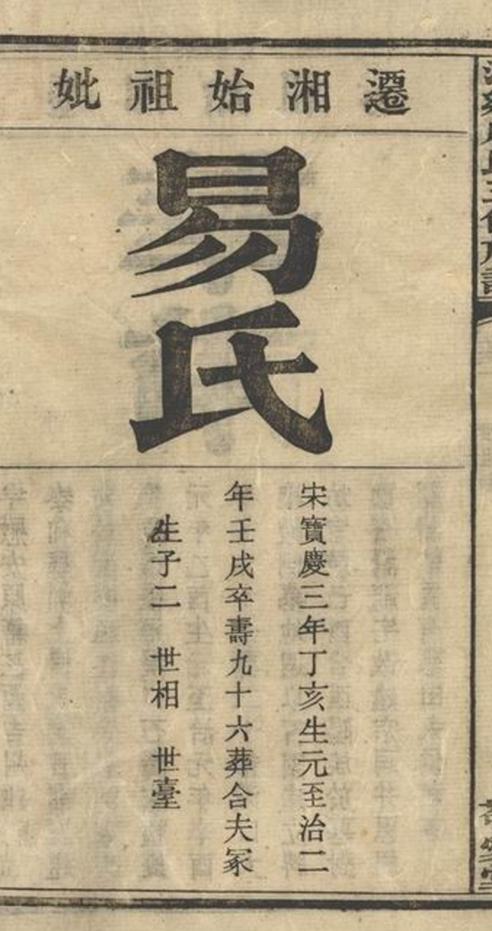 遷湘始祖妣
易氏
宋寶慶三年丁亥生元至治二
年壬戌卒壽九十六葬合夫冢
生子二 世相 世臺